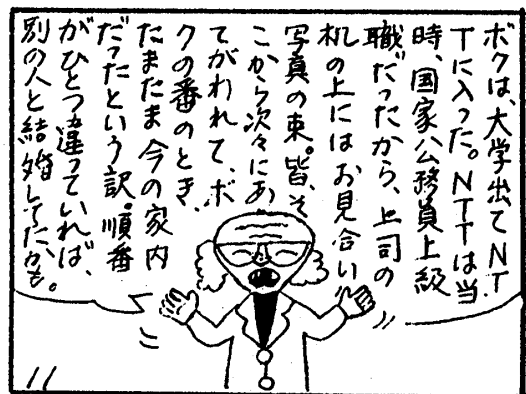 ボクは、大学出てNT
Tに入った。NTTは当
時、国家公務員上級
職だったから、上司の
机の上にはお見合い
写真の束。皆、そ
こから次々にあ
てがわれて、ボ
クの番のとき、
たまたま今の家内
だったという訳。順番
がひとつ違っていれば、
別の人と結婚してたかも。
11